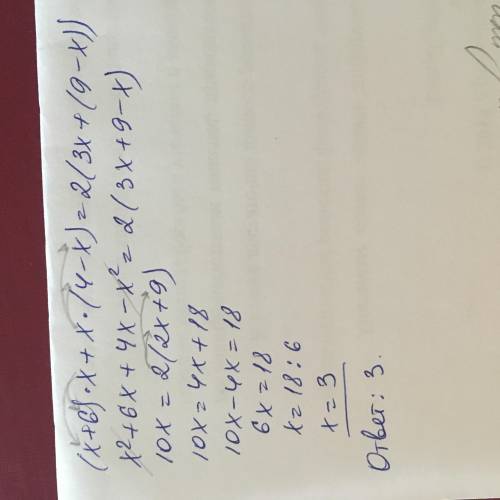 (x+6)·x+x·(4-x)=2(3x+(9-x))
x²+6x+4x-x²=2(3x+9-x)
10x=2(2x+9)
10x=4x+18
10x-4x=18
6x=18
x=18:6
x=3
Ответ: 3.